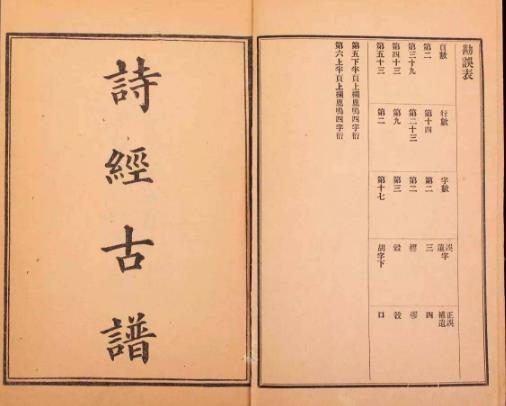 勘誤表
頁數 行數 字數 誤字遺字 正誤補遺
第二 第十四 第二 三 四
第三十九 第二十三 第二
第四十三 第九 第三
第五十三 第二 第十七 胡字下 口
第五下半頁上欄鹿鳴四字衍
第六上半頁上欄鹿鳴四字衍
詩經古譜